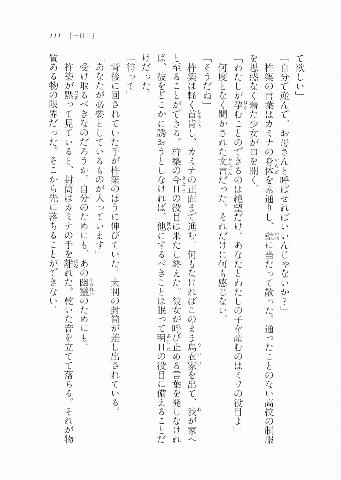 111 ［一日］
て欲しい」
「自分で産んで、お母さんと呼ばせればいいんじゃないか？」
杵築の言葉はカミナの身体を素通りし、壁に当たって散った。通ったことのない高校の制服
を思惑なく着た少女が口を開く。
「わたしが孕むことのできるのは絶望だけ。あなたとわたしの子を産むのはミワの役目よ」
何度となく聞かされた文言だった。それだけに何も感じない。
「そうだね」
杵築は軽く首肯し、カミナの正面まで進む。何もなければこのまま烏衣家を出て、我が家へ
と至ることができる。杵築の今日の役目は果たし終えた。彼女が呼び止める言葉を発しなけれ
ば、彼をどこかに誘おうとしなければ、他にするべきことは眠って明日の役目に備えることだ
けだった。
「待って」
背後に回されていた手が杵築のほうに伸びていた。大判の封筒が差し出されている。
「あなたが必要としているものが入っています」
受け取るべきなのだろうか。自分のためにも、あの幽霊のためにも。
杵築が黙って見ていると、封筒はカミナの手を離れた。乾いた音を立てて落ちる。それが物
質ある物の限界だった。そこから先に落ちることができない。